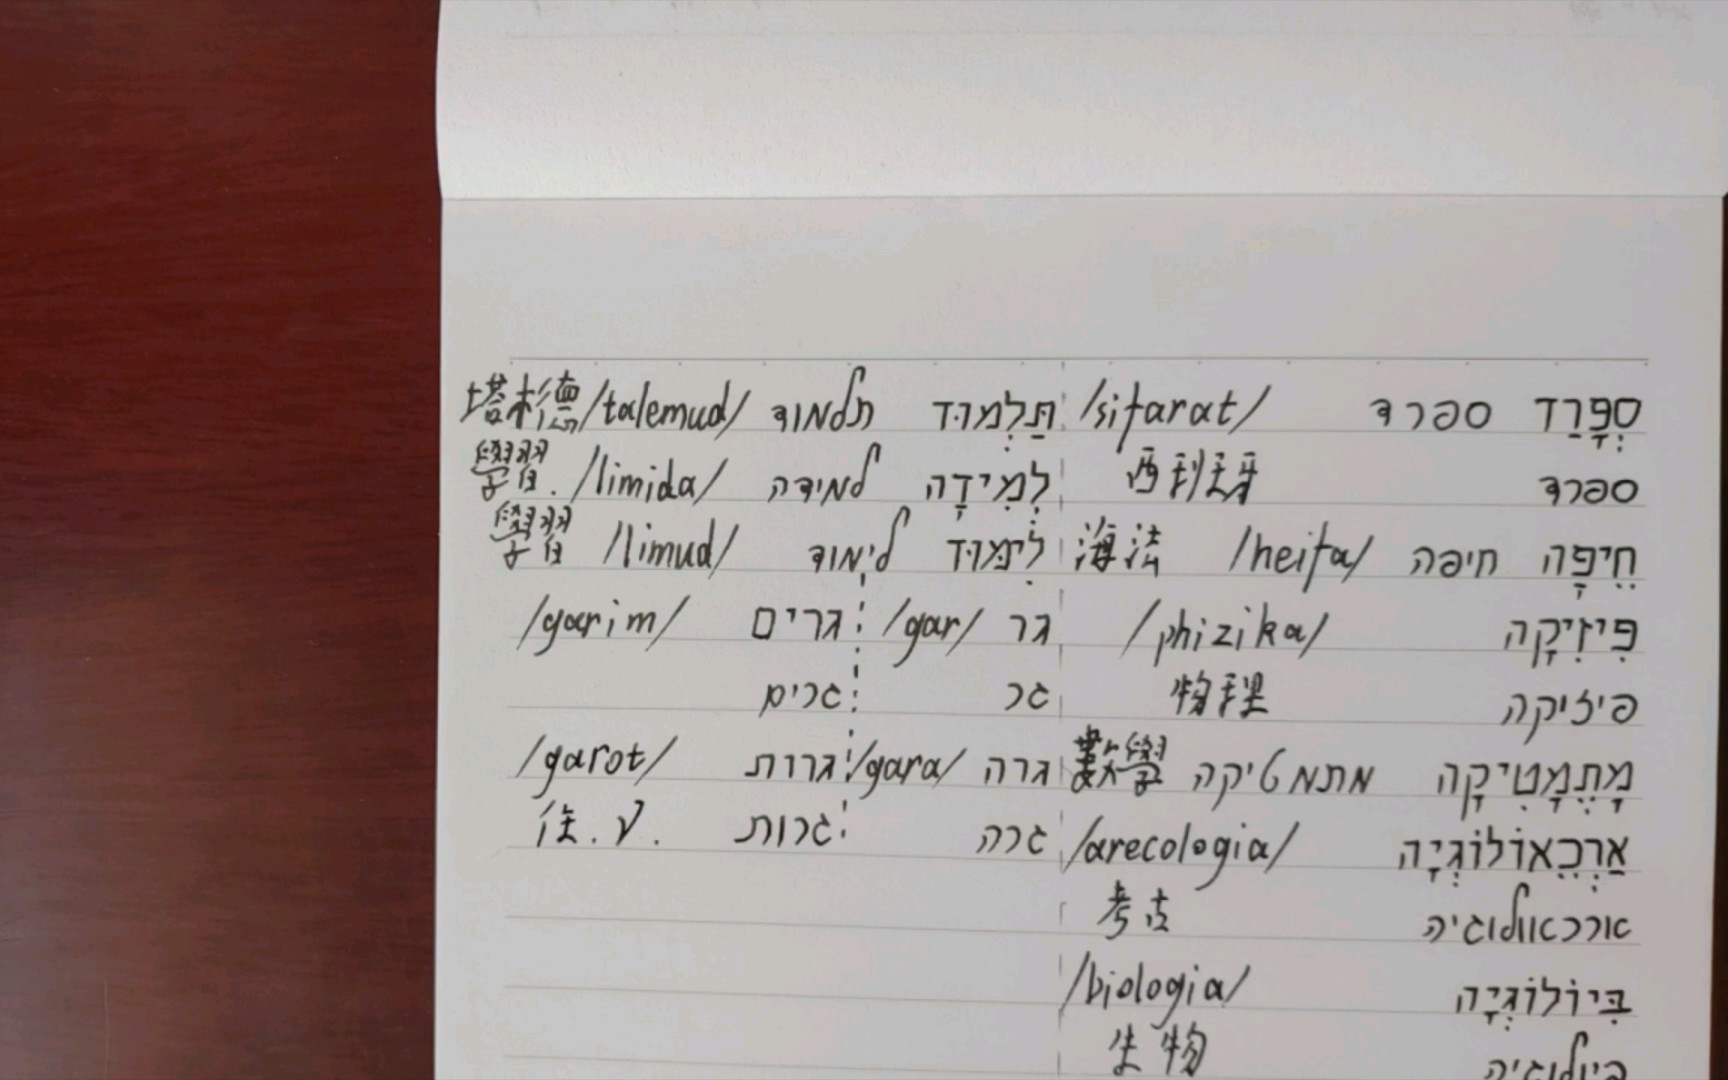 סְפָרַד ספרד /sifarat/
ספרד 西利牙
חֵיפָה חיפה /heifa/ 海法
פִיזִיקָה /phizika/
פיזיקה 物理
מָתֶמָטִיקָה מתמטיקה 數學
אַרְכֶאוֹלוֹגְיָה /arecologia/
ארכאולוגיה 考古
בִּיוֹלוֹגְיָה /biologia/
ביולוגיה 生物
תַּלְמוּד תלמוד /talemud/ 塔木德
לְמִידָה למידה /limida/ 學習.
לִימוּד לימוד /limud/ 學習
גר /gar/ גרים /garim/
גר גרים
גרה /gara/ גרות /garot/
גרה גרות 住.V.